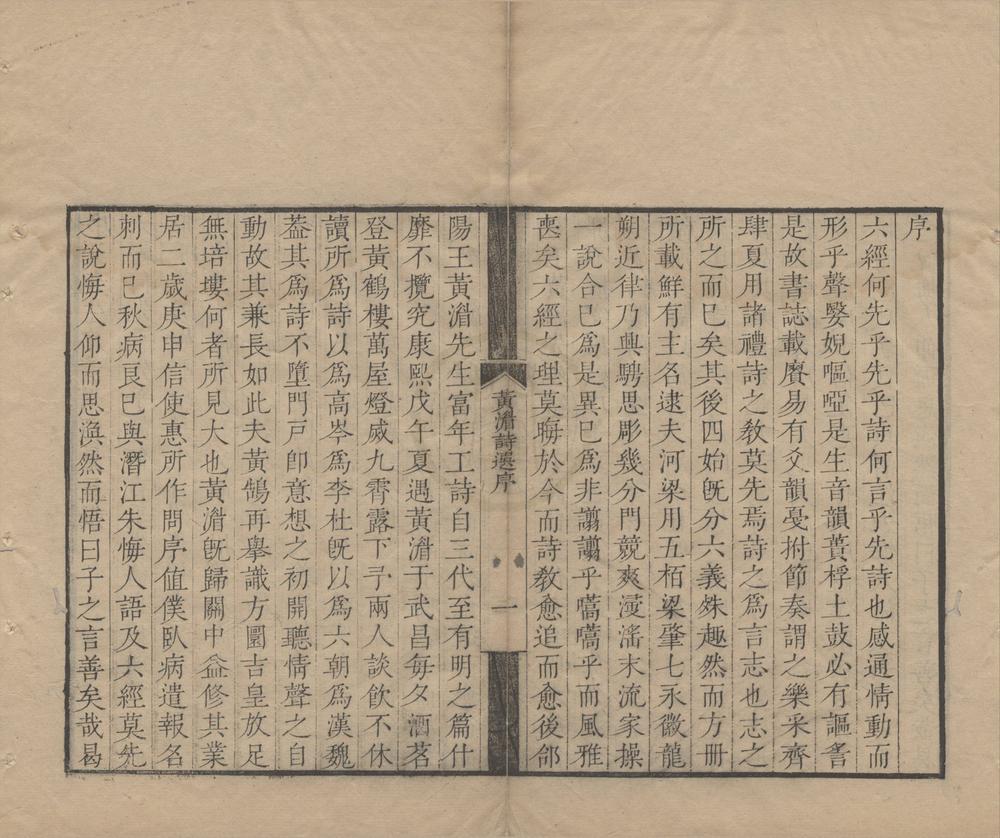 序
六經何先乎先乎詩何言乎先詩也感通情動而
形乎聲嬰婗嘔啞是生音韻蕢桴土鼓必有謳謡
是故書誌載賡易有爻韻戛拊節奏謂之樂采齊
肆夏用諸禮詩之敎莫先焉詩之爲言志也志之
所之而已矣其後四始旣分六義殊趣然而方冊
所載鮮有主名逮夫河梁用五栢梁肇七永徽龍
朔近律乃興騁思彫幾分門競爽漫滛末流家操
一說合已爲是異已爲非謭謭乎嚆嚆乎而風雅
喪矣六經之理莫晦於今而詩敎愈追而愈後郃
陽王黃湄先生富年工詩自三代至有明之篇什
靡不攬究康熙戊午夏遇黃湄于武昌每夕酒茗
登黃鶴樓萬屋燈威九霄露下予兩人談飮不休
讀所爲詩以爲高岑爲李杜旣以爲六朝爲漢魏
葢其爲詩不墮門戶卽意想之初開聽情聲之自
動故其兼長如此夫黃鵠再擧識方圜吉皇放足
無培塿何者所見大也黃湄旣歸關中益修其業
居二歲庚申信使惠所作問序值僕臥病遣報名
刺而已秋病艮已與潛江朱悔人語及六經莫先
之說悔人仰而思渙然而悟曰子之言善矣哉曷
黃湄詩選序
一